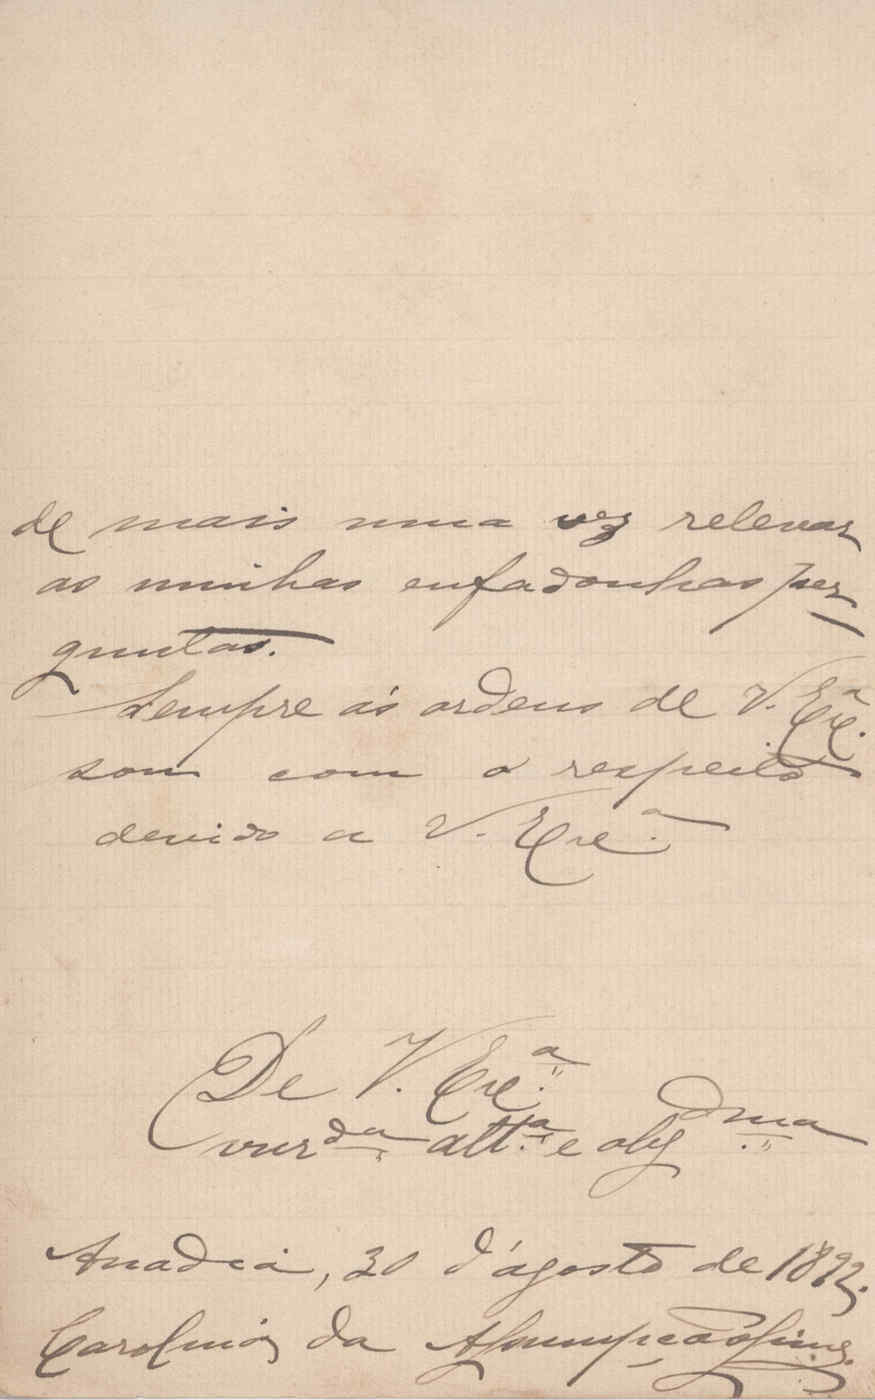 de mais uma vez relevar
as minhas enfadonhas per-
guntas.
Sempre ás ordens de V. Exc.ª
sou com o respeito
devido a V. Exc.ª
De V. Exc.ª
att.ª e obg.dma
Anadia, 30 d'agosto de 1892.
Carolina da Assumpção